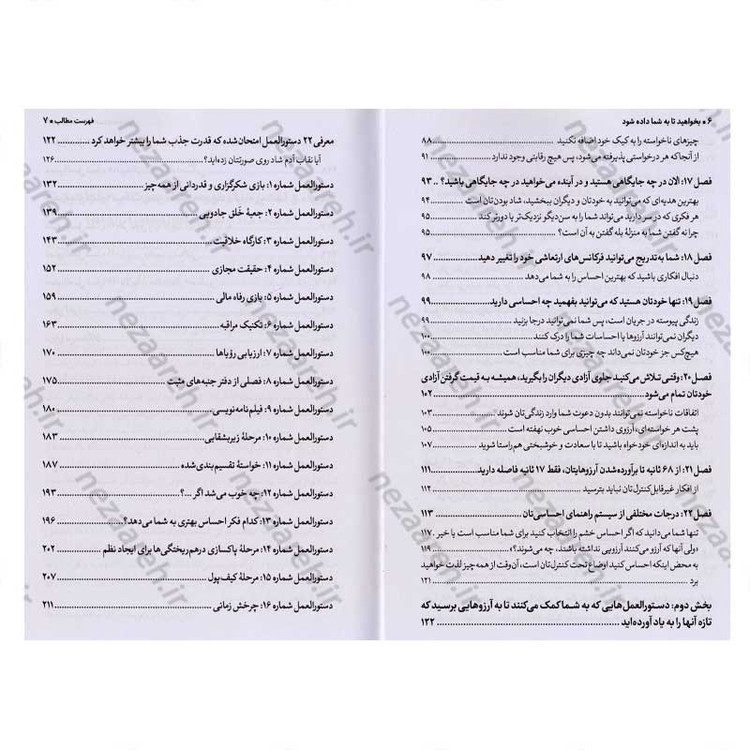 ۶ ● بخواهید تا به شما داده شود
چیزهای ناخواسته را به کیک خود اضافه نکنید ........ ۸۸
از آنجاکه هر درخواستی پذیرفته می‌شود، پس هیچ رقابتی وجود ندارد ........ ۹۱
فصل ۱۷: الان در چه جایگاهی هستید و در آینده می‌خواهید در چه جایگاهی باشید؟ .. ۹۳
بهترین هدیه‌ای که می‌توانید به خودتان و دیگران ببخشید، شاد بودن‌تان است ........ ۹۴
هر فکری که در سر دارید می‌تواند شما را به سن‌دیگر نزدیک‌تر یا دورتر کند ........ ۹۵
چرا نه گفتن شما به منزلهٔ بله گفتن به آن است؟ ........ ۹۵
فصل ۱۸: شما به‌تدریج می‌توانید فرکانس‌های ارتعاشی خود را تغییر دهید ........ ۹۷
دنبال افکاری باشید که بهترین احساس را به شما می‌دهد ........ ۹۸
فصل ۱۹: تنها خودتان هستید که می‌توانید بفهمید چه احساسی دارید ........ ۹۹
زندگی پیوسته در جریان است، پس شما نمی‌توانید درجا بزنید ........ ۹۹
دیگران نمی‌توانند آرزوها یا احساسات شما را درک کنند ........ ۱۰۰
هیچ‌کس جز خودتان نمی‌داند چه چیزی برای شما مناسب است ........ ۱۰۰
فصل ۲۰: وقتی تلاش می‌کنید جلوی آزادی دیگران را بگیرید، همیشه به قیمت گرفتن آزادی
خودتان تمام می‌شود ........ ۱۰۲
اتفاقات ناخواسته نمی‌توانند بدون دعوت شما وارد زندگی‌تان شوند ........ ۱۰۳
پشت هر خواسته‌ای، آرزوی داشتن احساسی خوب نهفته است ........ ۱۰۵
باید به اندازه‌ای خودخواه باشید تا با سعادت و خوشبختی هم‌راستا شوید ........ ۱۰۷
فصل ۲۱: از ۶۸ ثانیه تا برآورده‌شدن آرزوهایتان، فقط ۱۷ ثانیه فاصله دارید ........ ۱۱۱
از افکار غیرقابل‌کنترل‌تان نباید بترسید ........ ۱۱۲
فصل ۲۲: درجات مختلفی از سیستم راهنمای احساسی‌تان ........ ۱۱۳
تنها شما می‌دانید که اگر احساس خشم را انتخاب کنید برای شما مناسب است یا خیر . ۱۱۷
«ولی آنها که آرزو می‌کنند آرزویی نداشته باشند، چه می‌شوند؟» ........ ۱۱۹
به محض اینکه احساس کنید اوضاع تحت کنترل‌تان است، آن‌وقت از همه چیز لذت خواهید
برد ........ ۱۲۱
بخش دوم: دستورالعمل‌هایی که به شما کمک می‌کنند تا به آرزوهایی برسید که
تازه آنها را به یاد آورده‌اید ........ ۱۲۲
فهرست مطالب ● ۷
معرفی ۲۲ دستورالعمل امتحان‌شده که قدرت جذب شما را بیشتر خواهد کرد ........ ۱۲۲
آیا نقاب آدم شاد روی صورتتان زده‌اید؟ ........ ۱۲۶
دستورالعمل شماره ۱: بازی شکرگزاری و قدردانی از همه‌چیز ........ ۱۳۲
دستورالعمل شماره ۲: جعبهٔ خَلق جادویی ........ ۱۳۹
دستورالعمل شماره ۳: کارگاه خلاقیت ........ ۱۴۳
دستورالعمل شماره ۴: حقیقت مجازی ........ ۱۵۲
دستورالعمل شماره ۵: بازی رفاه مالی ........ ۱۵۹
دستورالعمل شماره ۶: تکنیک مراقبه ........ ۱۶۳
دستورالعمل شماره ۷: ارزیابی رؤیاها ........ ۱۷۰
دستورالعمل شماره ۸: فصلی از دفتر جنبه‌های مثبت ........ ۱۷۵
دستورالعمل شماره ۹: فیلم‌نامه‌نویسی ........ ۱۸۰
دستورالعمل شماره ۱۰: مرحلهٔ زیربشقابی ........ ۱۸۳
دستورالعمل شماره ۱۱: خواستهٔ تقسیم‌بندی‌شده ........ ۱۸۷
دستورالعمل شماره ۱۲: چه خوب می‌شد اگر ...؟ ........ ۱۹۳
دستورالعمل شماره ۱۳: کدام فکر احساس بهتری به شما می‌دهد؟ ........ ۱۹۶
دستورالعمل شماره ۱۴: مرحلهٔ پاکسازی درهم‌ریختگی‌ها برای ایجاد نظم ........ ۲۰۲
دستورالعمل شماره ۱۵: مرحلهٔ کیف‌پول ........ ۲۰۷
دستورالعمل شماره ۱۶: چرخش زمانی ........ ۲۱۱
nezaareh.ir